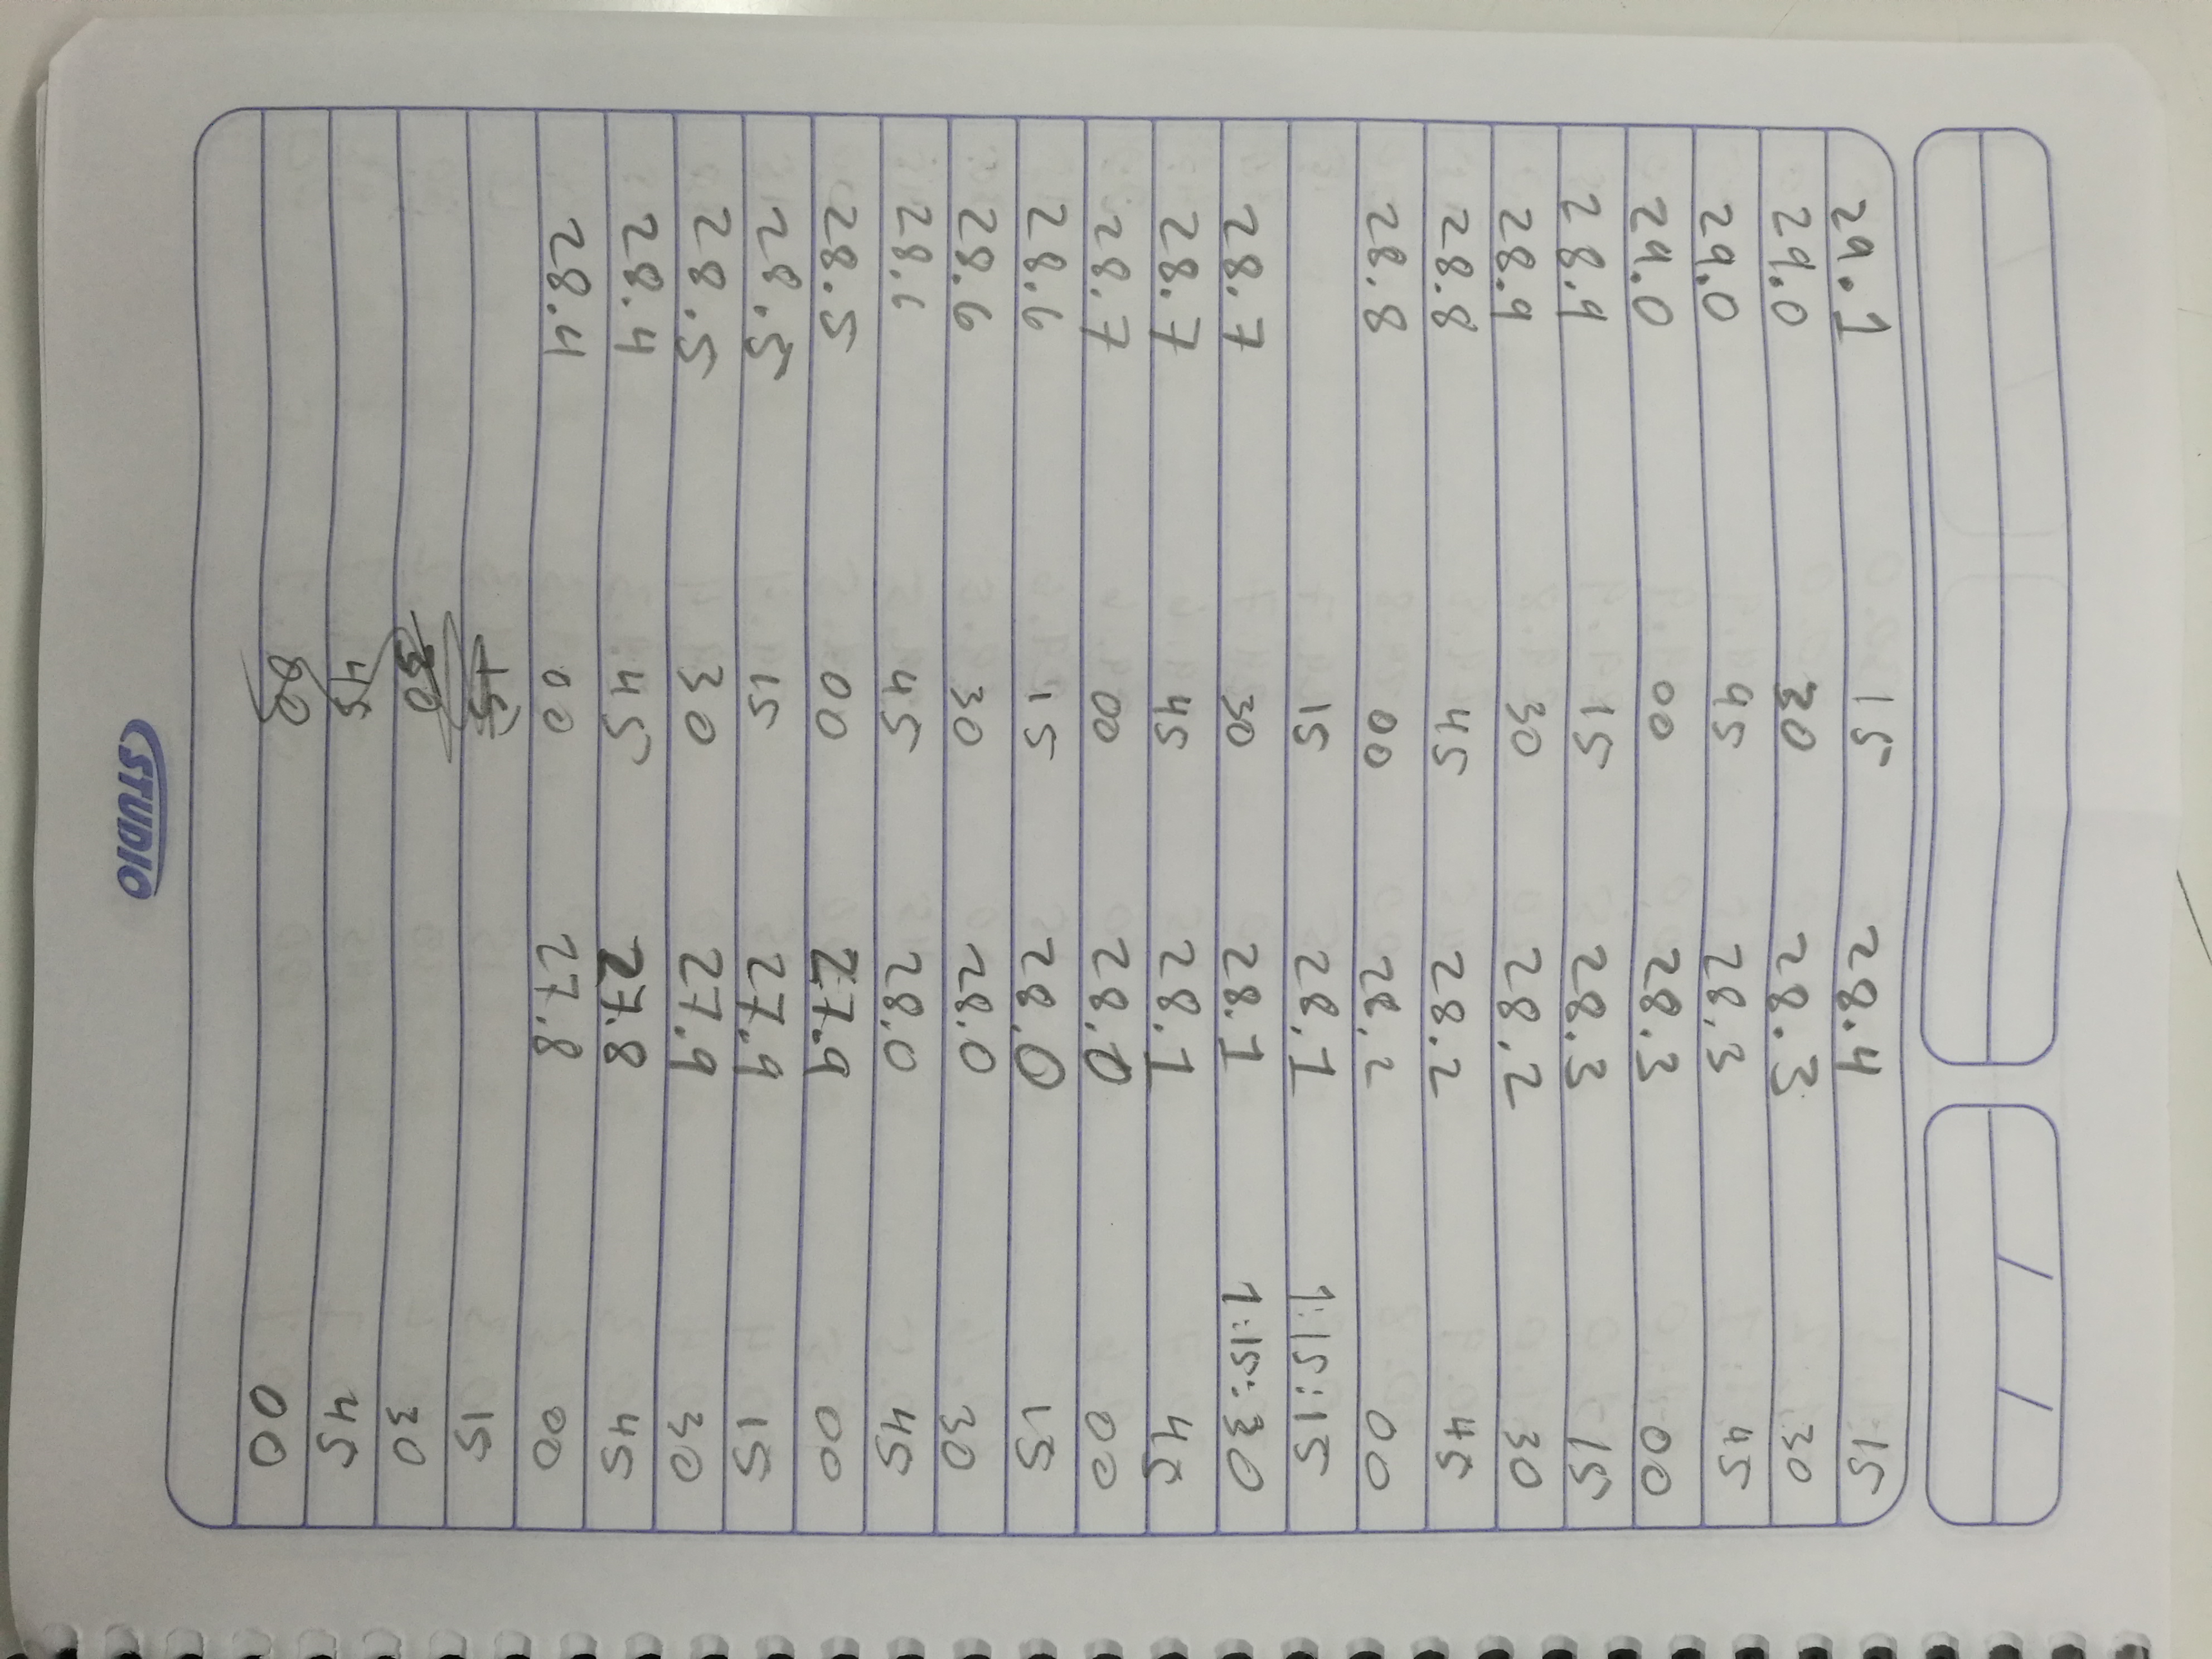 / /
29.1 15 28.4 15
29.0 30 28.3 30
29.0 45 28.3 45
29.0 00 28.3 00
28.9 15 28.3 15
28.9 30 28.2 30
28.8 45 28.2 45
28.8 00 28.2 00
15 28.1 1:15:15
28.7 30 28.1 1:15:30
28.7 45 28.1 45
28.7 00 28.0 00
28.6 15 28.0 15
28.6 30 28.0 30
28.6 45 28.0 45
28.5 00 27.9 00
28.5 15 27.9 15
28.5 30 27.9 30
28.4 45 27.8 45
28.4 00 27.8 00
15 15
30 30
45 45
00 00
STUDIO